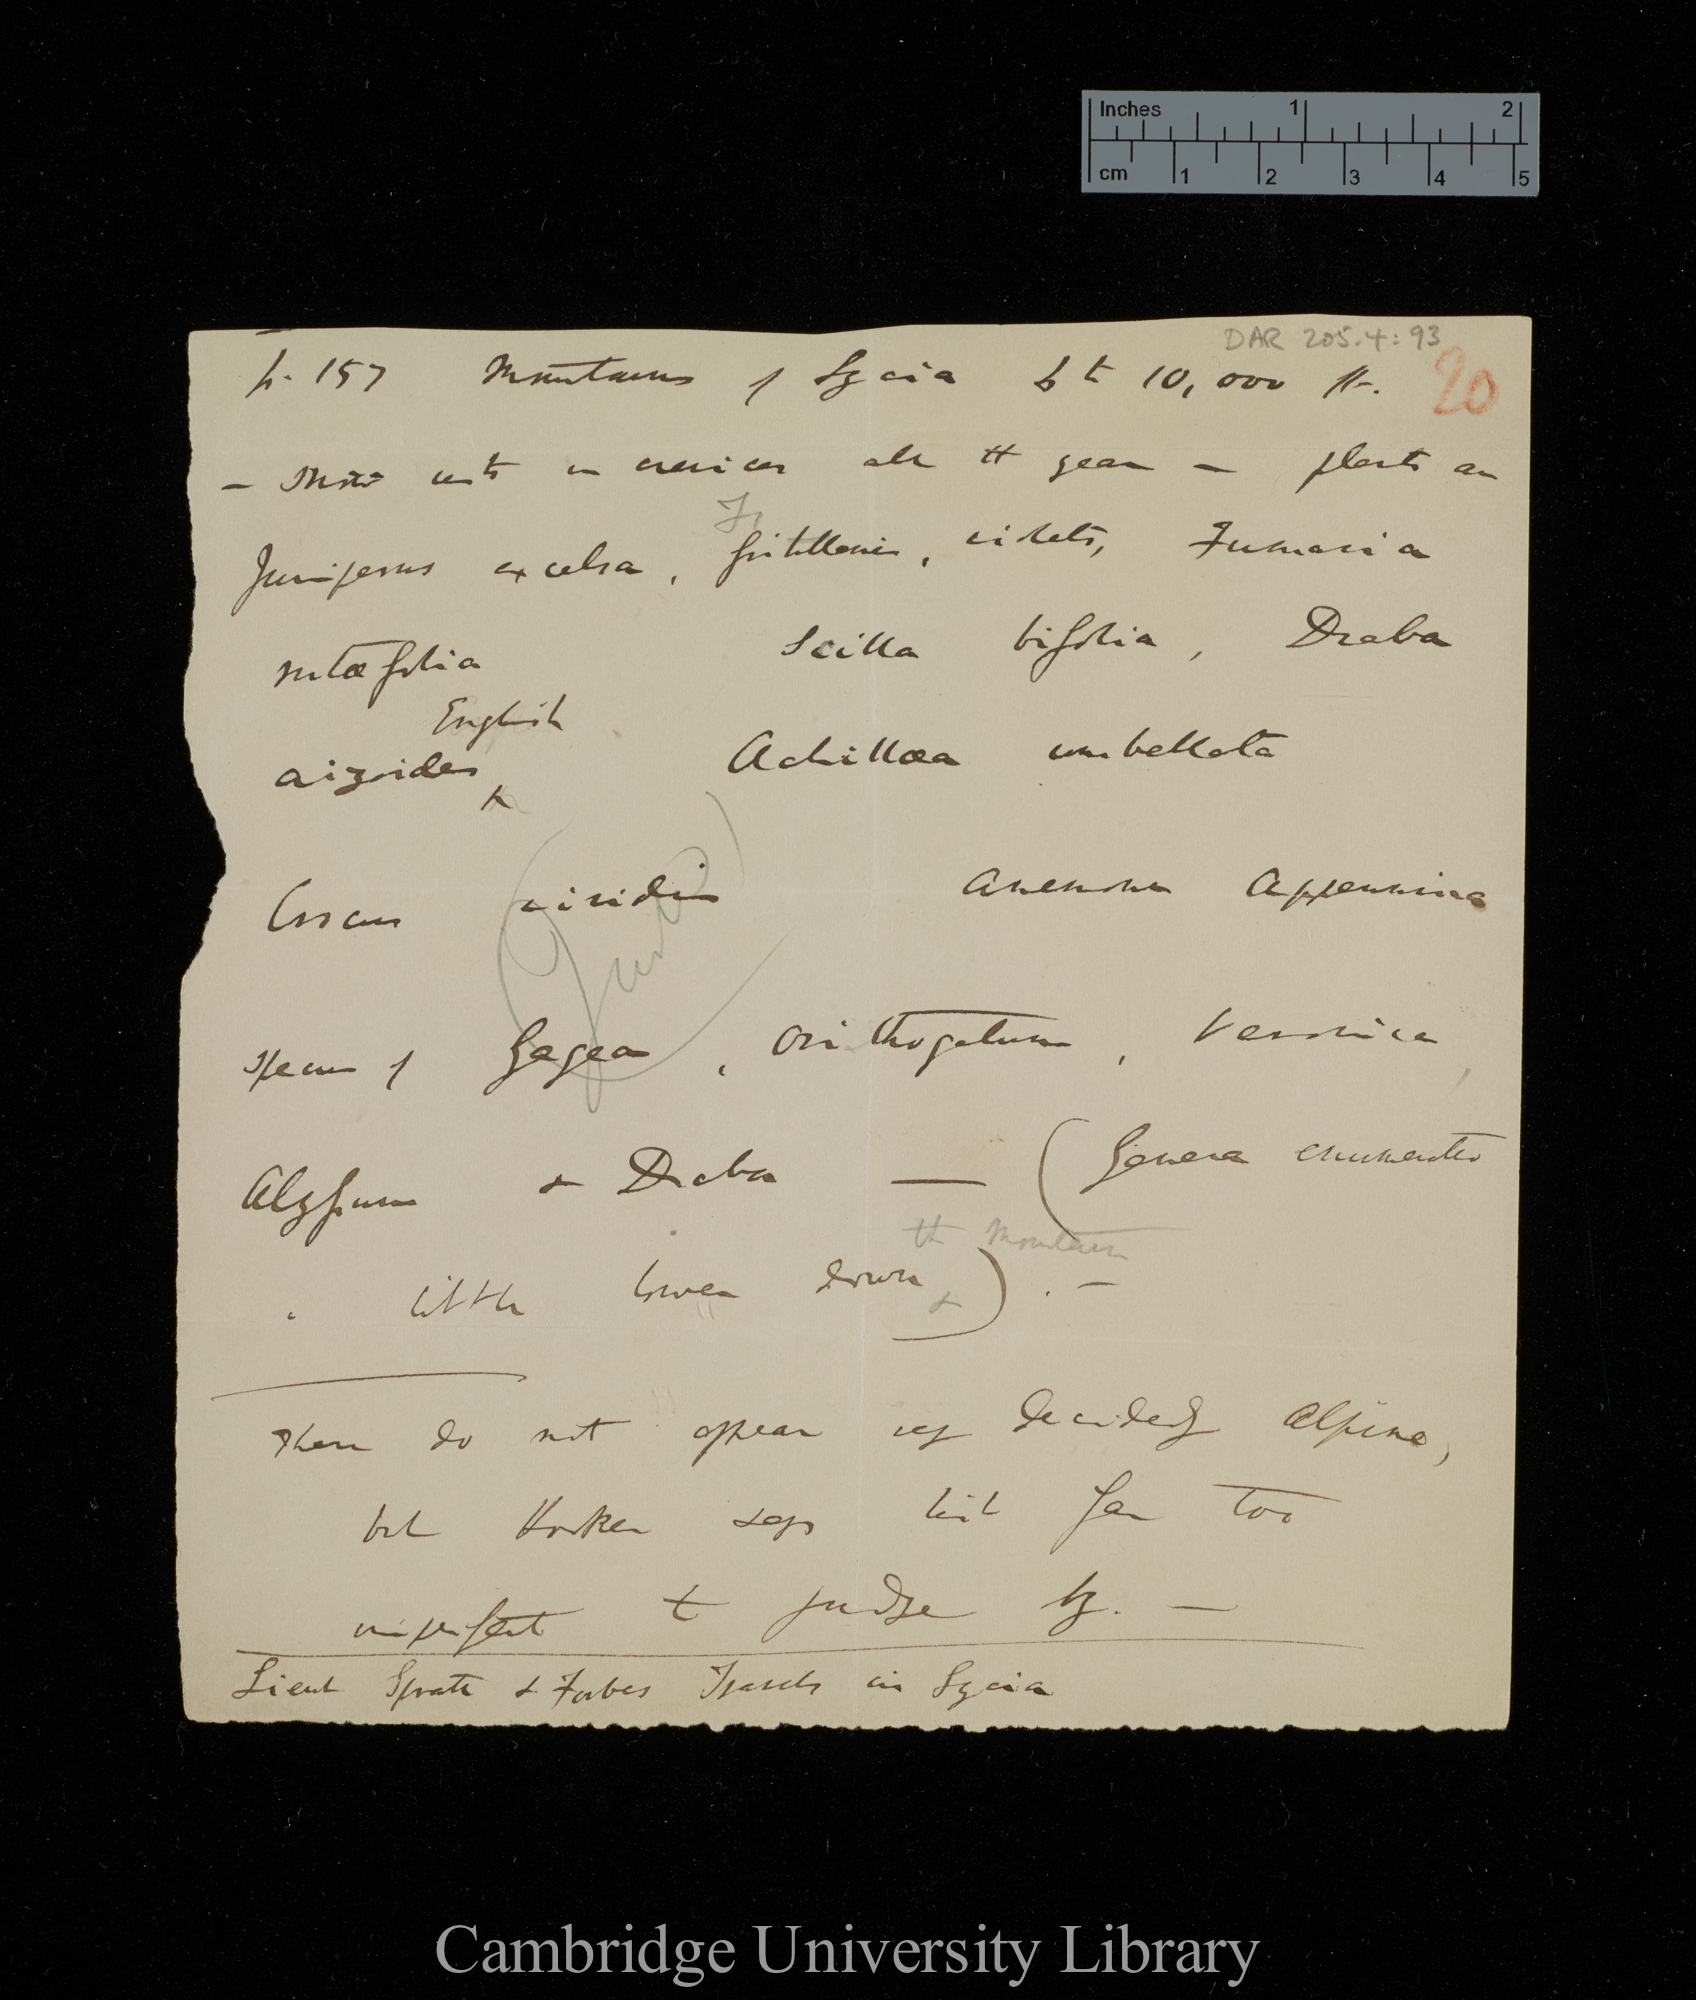 Inches 1 2
cm 1 2 3 4 5
DAR 205.4:93
20
p. 157 Mountains of Lycia to 10,000 ft.
— Snow rests in crevices all the year — plants are
Fr
Juniperus excelsa, fritillaria, violets, Fumaria
rutæfolia Scilla bifolia, Draba
English
aizoides Achillœa umbellata
Crocus viridis Anemone Appennina
species of Gagea, Orithogalum, Veronica,
Alyssum & Draba — (Genera enumerated
th Mountain
little lower down &). —
These do not appear very decidedly Alpine,
but Hooker says list far too
imperfect to judge by. —
Lieut Spratt & Forbes Travels in Lycia
Cambridge University Library